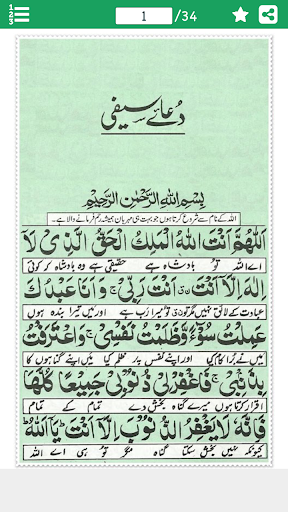 1 /34
دُعائے سیفی
بِسْمِ اللهِ الرَّحْمٰنِ الرَّحِيْمِ
اللہ کے نام سے شروع کرتا ہوں جو بہت ہی مہربان ہمیشہ رحم فرمانے والا ہے۔
اَللّٰهُمَّ اَنْتَ اللهُ الْمَلِكُ الْحَقُّ الَّذِىْ لَآ
اے اللہ تو بادشاہ ہے حقیقی ہے وہ بادشاہ کہ کوئی
اِلٰهَ اِلَّآ اَنْتَ اَنْتَ رَبِّىْ وَاَنَا عَبْدُكَ
عبادت کے لائق نہیں مگر تو، تو میرا رب ہے اور میں تیرا بندہ ہوں
عَمِلْتُ سُوْٓءً وَّظَلَمْتُ نَفْسِىْ وَاعْتَرَفْتُ
میں نے برا کام کیا اور اپنے نفس پر ظلم کیا میں اپنے گناہوں کا
بِذَنْبِىْ فَاغْفِرْلِىْ ذُنُوْبِىْ جَمِيْعًا كُلَّهَا
اقرار کرتا ہوں میرے گناہ بخش دے تمام کے تمام
فَاِنَّهٗ لَا يَغْفِرُ الذُّنُوْبَ اِلَّآ اَنْتَ يَا اَللهُ
کیونکہ نہیں بخش سکتا گناہ مگر تو ہی اے اللہ